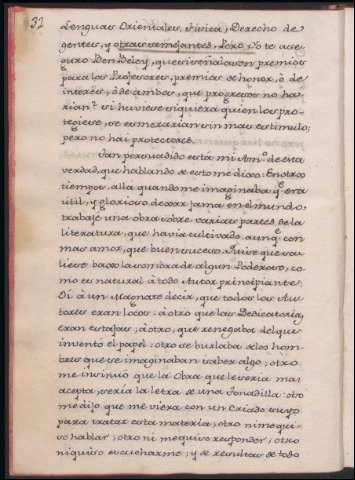 32
Lenguas Orientales, Fisica, Derecho de
gentes, y otras semejantes. Pero Yo te ase-
guro Ben Beley, que si señalasen premios
para los Profesores, premios de honor, ò de
interès, ò de ambos, que progresos no ha-
rian? si huviese siquiera quien los pro-
tegiese, se esmerarian sin mas estimulo;
pero no hai protectores.
Tan persuadido està mi Amº de esta
verdad, que hablando de esto me dixo: En otros
tiempos, alla quando me imaginaba q.e era
util, y glorioso dexar fama en el mundo,
trabajè una obra sobre varias partes de la
literatura, que havia cultivado, aunq.e con
mas amor, que buen suceso. Quise que sa-
liese baxo la sombra de algun Poderoso, co-
mo es natural à todo Autor principiante.
Oì à un Magnate decir, que todos los Au-
tores eran locos: à otro que las Dedicatorias
eran estafas; à otro, que renegaba del que
invento el papel: otro se burlaba de los hom-
bres que se imaginaban saber algo; otro
me insinuò que la Obra que le seria mas
acepta, seria la letra de una Tonadilla: otro
me dijo que me viera con un Criado suyo
para tratar esta materia; otro ni me qui-
so hablar; otro ni me quiso responder; otro
ni quiso escucharme; y de resultas de todo